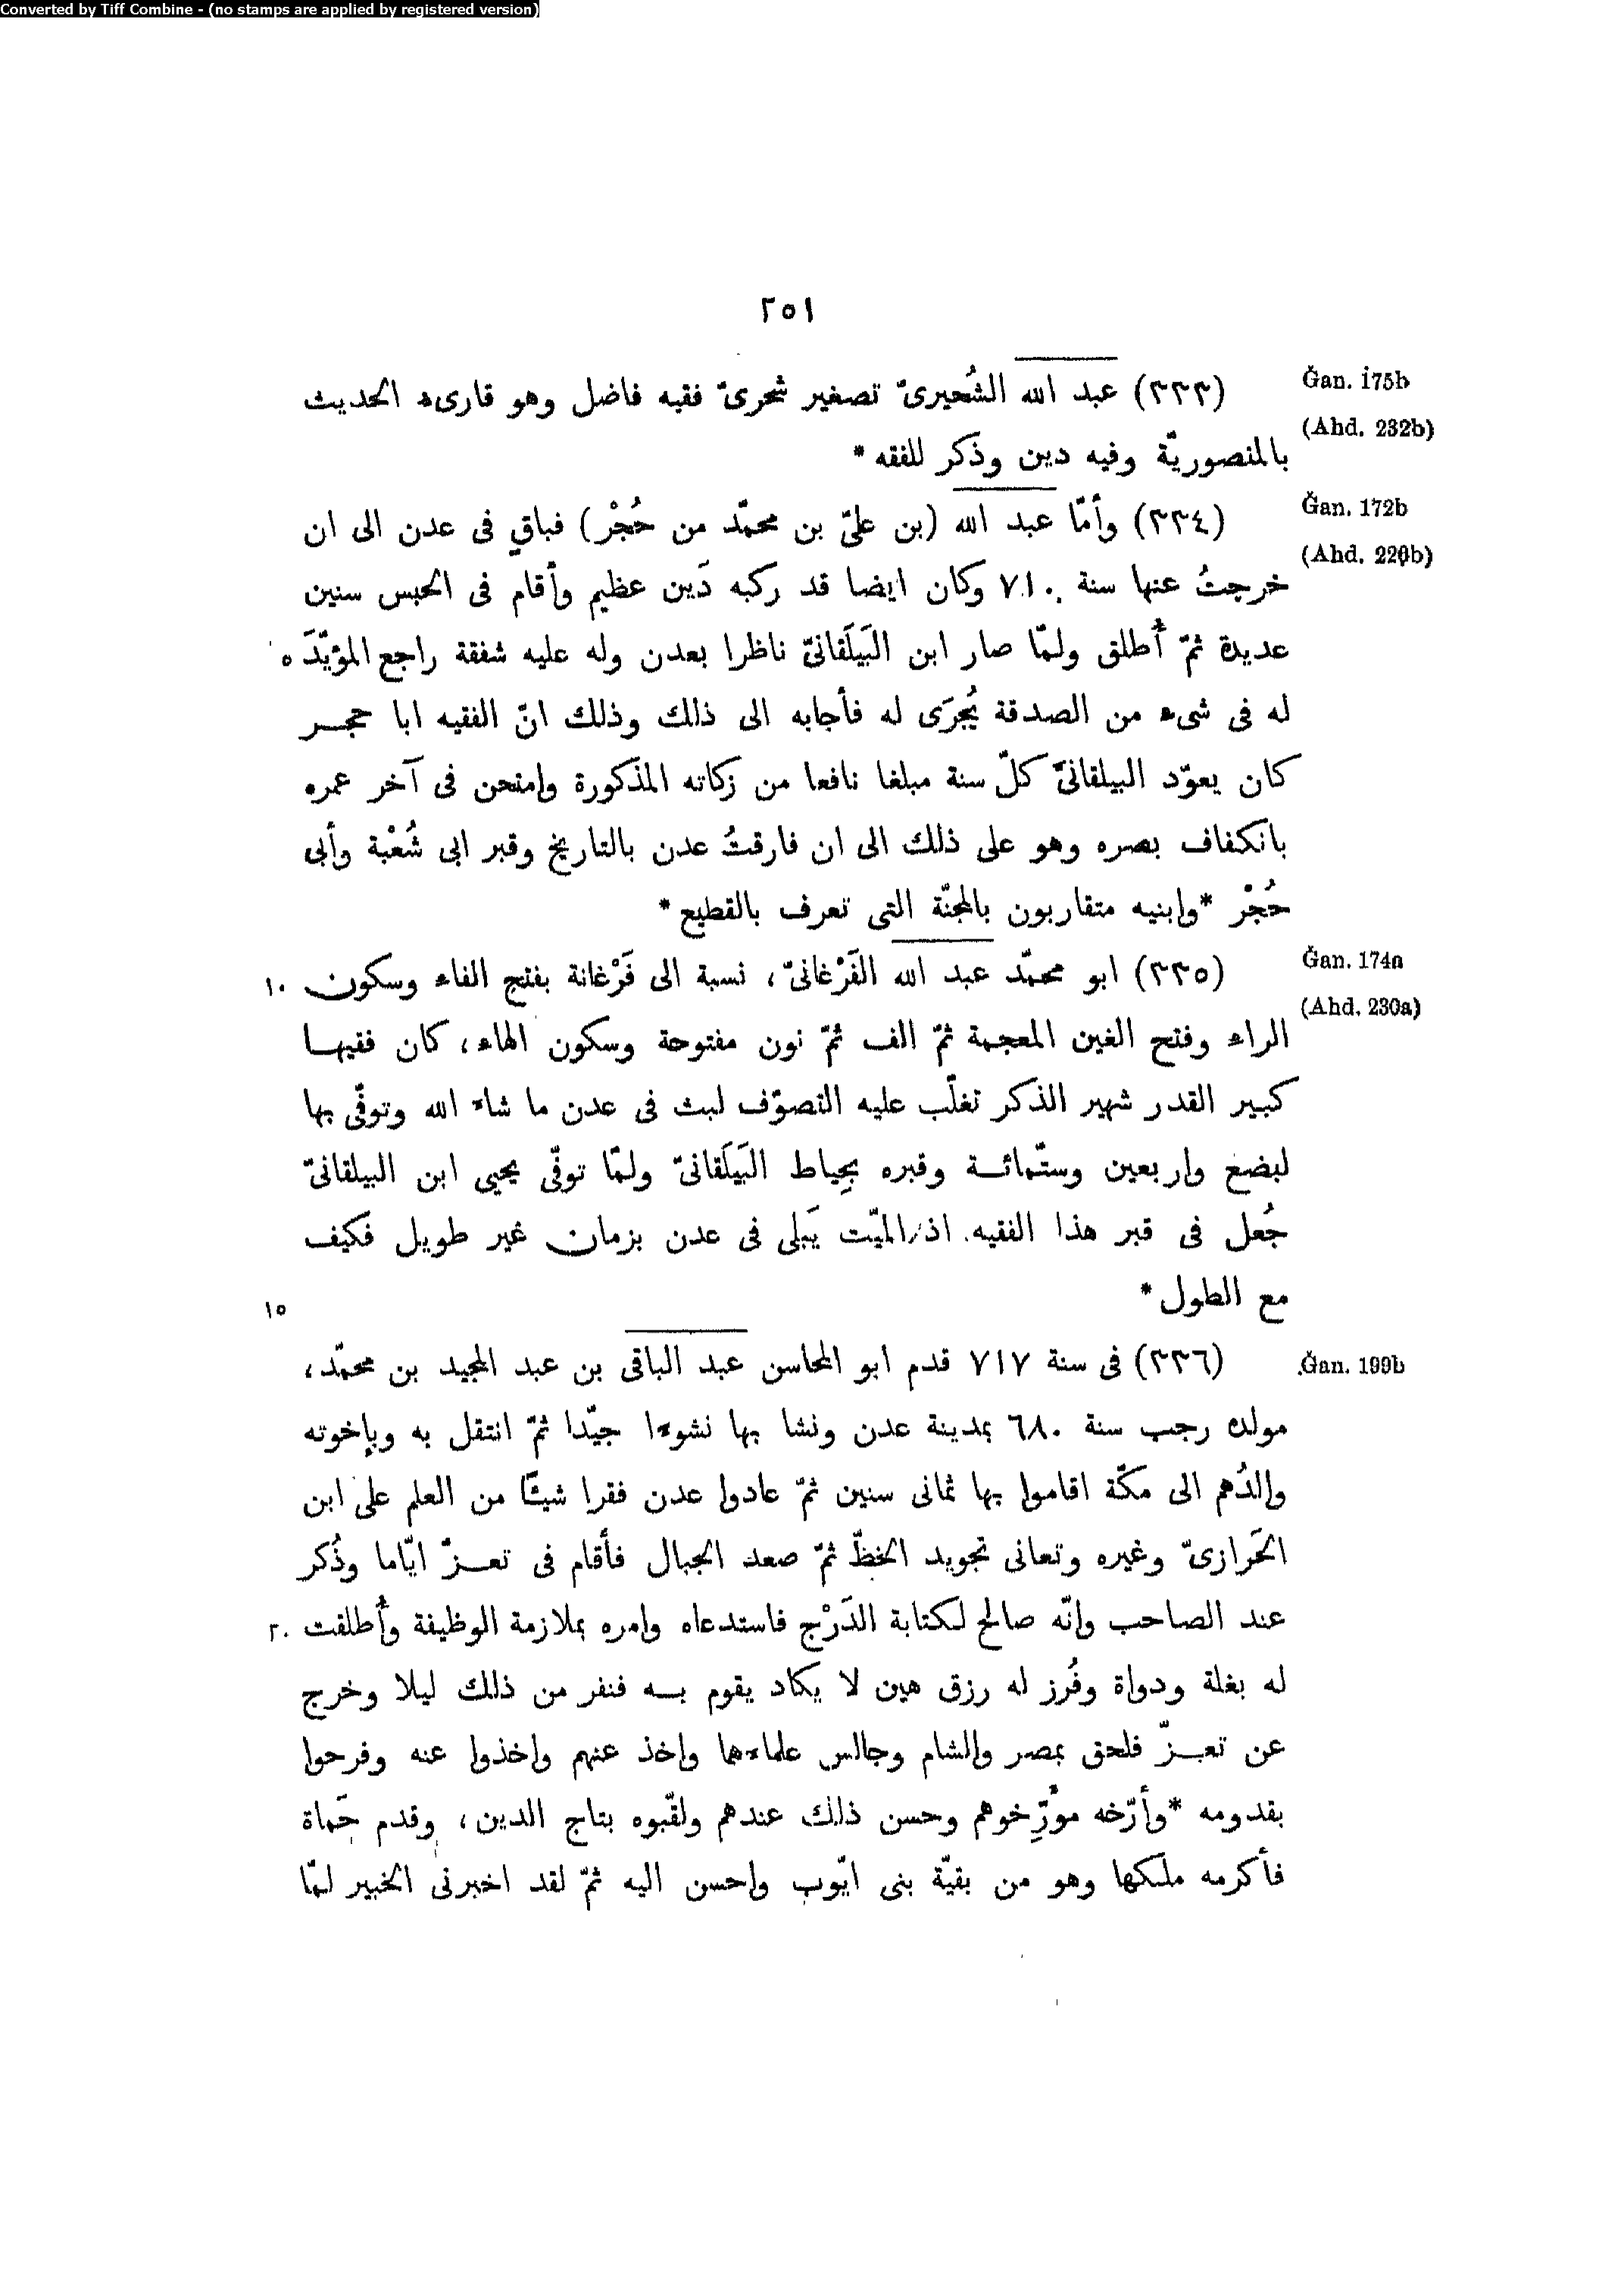 Converted by Tiff Combine - (no stamps are applied by registered version)
٢٥١
Ǧan. 175b
(٣٣٣) عبد الله الشُحيرىّ تصغير شحرىّ فقيه فاضل وهو قارىء الحديث
(Ahd. 232b)
بالمنصوريّة وفيه دين وذكر للفقه *
Ǧan. 172b
(٣٣٤) وأمّا عبد الله (بن علىّ بن محمّد من حُجْر) فباقٍ فى عدن الى ان
(Ahd. 229b)
خرجتُ عنها سنة ٧١٠ وكان ايضا قد ركبه دَين عظيم وأقام فى الحبس سنين
عديدة ثمّ أُطلق ولمّا صار ابن البَيلَقانىّ ناظرا بعدن وله عليه شفقة راجع المؤيّدَ ٥
له فى شىء من الصدقة يُجرَى له فأجابه الى ذلك وذلك انّ الفقيه ابا حجر
كان يعوّد البيلقانىّ كلّ سنة مبلغا نافعا من زكاته المذكورة وامتحن فى آخر عمره
بانكفاف بصره وهو على ذلك الى ان فارقتُ عدن بالتاريخ وقبر ابى شُعْبة وأبى
حُجْر *وابنيه متقاربون بالمجنّة التى تعرف بالقطيع *
Ǧan. 174a
(٣٣٥) ابو محمّد عبد الله الفَرْغانىّ، نسبة الى فَرْغانة بفتح الفاء وسكون ١٠
(Ahd. 230a)
الراء وفتح الغين المعجمة ثمّ الف ثمّ نون مفتوحة وسكون الهاء، كان فقيها
كبير القدر شهير الذكر تغلّب عليه التصوّف لبث فى عدن ما شاء الله وتوفّى بها
لبضع واربعين وستّمائة وقبره بحِياط البَيلَقانىّ ولمّا توفّى يحيى ابن البيلقانىّ
جُعل فى قبر هذا الفقيه. اذ الميّت يَبلى فى عدن بزمان غير طويل فكيف
مع الطول * ١٥
Ǧan. 199b
(٣٣٦) فى سنة ٧١٧ قدم ابو المحاسن عبد الباقى بن عبد المجيد بن محمّد،
مولده رجب سنة ٦٨٠ بمدينة عدن ونشا بها نشوءا جيّدا ثمّ انتقل به وبإخوته
والدُهم الى مكّة اقاموا بها ثمانى سنين ثمّ عادوا عدن فقرا شيئًا من العلم على ابن
الحَرازىّ وغيره وتعانى تجويد الخطّ ثمّ صعد الجبال فأقام فى تعزّ ايّاما وذُكر
عند الصاحب وانّه صالح لكتابة الدَرْج فاستدعاه وامره بملازمة الوظيفة وأُطلقت ٢٠
له بغلة ودواة وفُرز له رزق هين لا يكاد يقوم به فنفر من ذلك ليلا وخرج
عن تعزّ فلحق بمصر والشام وجالس علماءها واخذ عنهم واخذوا عنه وفرحوا
بقدومه *وأرّخه مؤرّخوهم وحسن ذلك عندهم ولقّبوه بتاج الدين، وقدم حَماة
فأكرمه ملكها وهو من بقيّة بنى ايّوب واحسن اليه ثمّ لقد اخبرنى الخبير لمّا